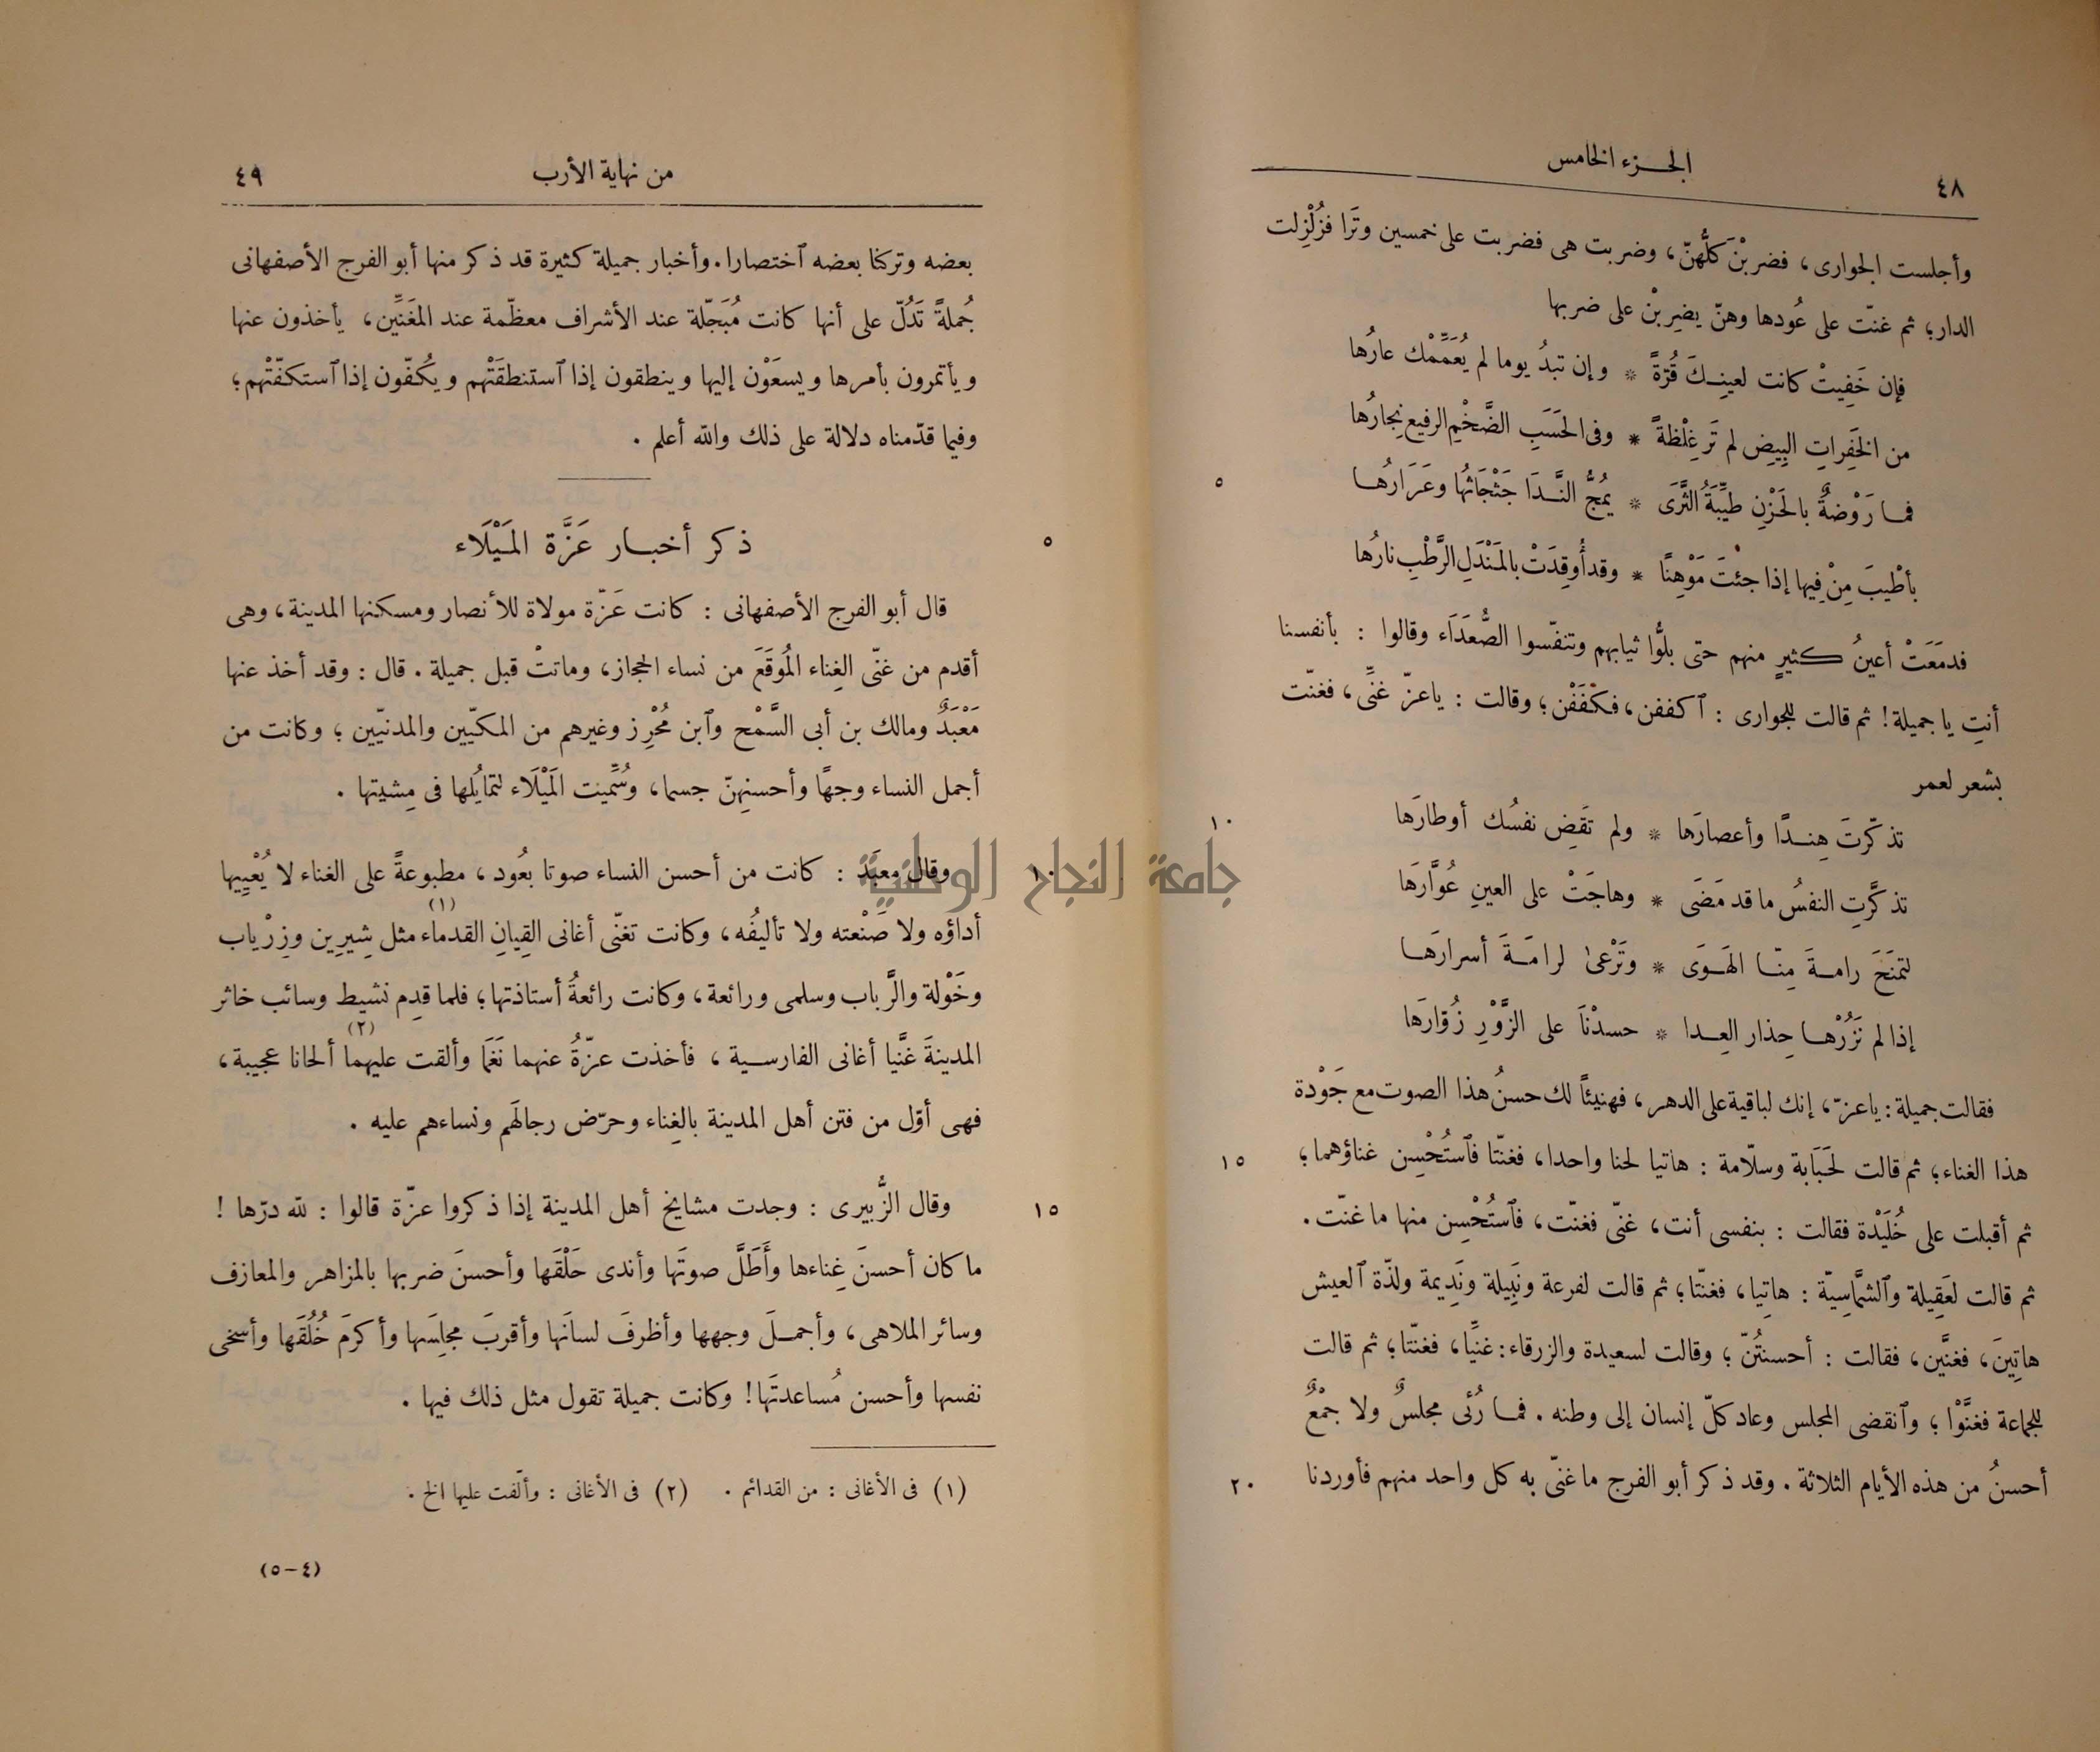 الجزء الخامس
٤٨
وأجلست الجوارى، فضربْنَ كلُّهنّ، وضربت هى فضربت على خمسين وتَرا فزُلْزِلت
الدار؛ ثم غنّت على عُودها وهنّ يضرِبْن على ضربها
فإن خَفِيتْ كانت لعينِكَ قُرّةً * وإن تبدُ يوما لم يُعَمِّمْك عارُها
من الخَفِراتِ البِيضِ لم تَر غِلْظةً * وفى الحَسَبِ الضَّخْمِ الرفيع نِجارُها
٥
فما رَوْضةٌ بالحَزْنِ طيِّبَةُ الثَّرَى * يمُجُّ النَّدَا جَثْجَاثُها وعَرَارُها
بأطْيبَ مِنْ فِيها إذا جئتَ مَوْهِنًا * وقد أُوقِدَتْ بالمَنْدَلِ الرَّطْبِ نارُها
فدمَعَتْ أعينُ كثيرٍ منهم حتى بلُّوا ثيابهم وتنفّسوا الصُّعَدَاء وقالوا : بأنفسنا
أنتِ يا جميلة! ثم قالت للجوارى : ٱكففن، فكفَفْن؛ وقالت : ياعزّ غنِّى، فغنّت
بشعر لعمر
١٠
تذكّرتَ هِندًا وأعصارَها * ولم تقَضِ نفسُك أوطارَها
تذكَّرتِ النفسُ ما قد مَضَى * وهاجَتْ على العينِ عُوَّارَها
لتمنَحَ رامةَ مِنّا الهَوَى * وتَرْعىٰ لرامَةَ أسرارَها
إذا لم نَزُرْها حِذار العِدا * حسدْنَا على الزَّوْرِ زُوّارَها
فقالت جميلة: ياعزّ، إنك لباقية على الدهر، فهنيئاً لك حسنُ هذا الصوت مع جَوْدة
١٥
هذا الغناء؛ ثم قالت لحَبَابة وسلّامة : هاتيا لحنا واحدا، فغنّتا فٱستُحْسِن غناؤهما؛
ثم أقبلت على خُلَيْدة فقالت : بنفسى أنت، غنّى فغنّت، فٱستُحْسِن منها ما غنّت.
ثم قالت لعَقِيلة وٱلشَّماسِيّة : هاتِيا، فغنّتا؛ ثم قالت لفرعة ونَبِيلة ونَدِيمة ولذّة ٱلعيش
هاتِينَ، فغنَّين، فقالت : أحسنتُنّ؛ وقالت لسعيدة والزرقاء: غنيِّا، فغنّتا؛ ثم قالت
للجماعة فغنَّوْا؛ وٱنقضى المجلس وعاد كلّ إنسان إلى وطنه. فما رُئى مجلسٌ ولا جمْعٌ
٢٠
أحسنُ من هذه الأيام الثلاثة. وقد ذكر أبو الفرج ما غنّى به كل واحد منهم فأوردنا
من نهاية الأرب
٤٩
بعضه وتركنا بعضه ٱختصارا. وأخبار جميلة كثيرة قد ذكر منها أبو الفرج الأصفهانى
جُملةً تَدُلّ على أنها كانت مُبَجّلة عند الأشراف معظّمة عند المغَنِّين، يأخذون عنها
ويأتمرون بأمرها ويسعَوْن إليها وينطقون إذا ٱستنطقَتْهم ويكُفّون إذا ٱستكفّتْهم؛
وفيما قدّمناه دلالة على ذلك والله أعلم.
٥
ذكر أخبار عَزَّة المَيْلَاء
قال أبو الفرج الأصفهانى : كانت عَزّة مولاة للأنصار ومسكنها المدينة، وهى
أقدم من غنّى الغِناء المُوقَعَ من نساء الحجاز، وماتتْ قبل جميلة. قال : وقد أخذ عنها
مَعْبَدٌ ومالك بن أبى السَّمْح وٱبن مُحْرِز وغيرهم من المكيّين والمدنيّين؛ وكانت من
أجمل النساء وجهًا وأحسنِهنّ جسما، وسُمِّيت المَيْلَاء لتمايُلها فى مِشيتها.
١٠
وقال معبَد : كانت من أحسن النساء صوتا بعُود، مطبوعةً على الغناء لا يُعْيِيها
أداؤه ولا صَنْعته ولا تأليفُه، وكانت تغنّى أغانى القِيانِ القدماء (١) مثل شِيرِين وزِرْياب
وخَوْلة والرَّباب وسلمى ورائعة، وكانت رائعةُ أستاذتها؛ فلما قدِم نشيط وسائب خاثر
المدينةَ غَنَّيا أغانى الفارسية، فأخذت عزّةُ عنهما نَغَما وألقت عليهما (٢) ألحانا عجيبة،
فهى أوّل من فتن أهل المدينة بالغِناء وحرّض رجالَهم ونساءهم عليه.
١٥
وقال الزُّبيرى : وجدت مشايخ أهل المدينة إذا ذكروا عزّة قالوا : لله درّها !
ما كان أحسنَ غِناءها وأَطَلَّ صوتَها وأندى حَلْقَها وأحسنَ ضربها بالمزاهر والمعازف
وسائر الملاهى، وأجملَ وجهها وأظرفَ لسانَها وأقربَ مجلِسَها وأكرمَ خُلُقَها وأسخى
نفسها وأحسن مُساعدتَها! وكانت جميلة تقول مثل ذلك فيها.
(١) فى الأغانى : من القدائم. (٢) فى الأغانى : وألّفت عليها الخ.
(٤-٥)
جامعة النجاح الوطنية